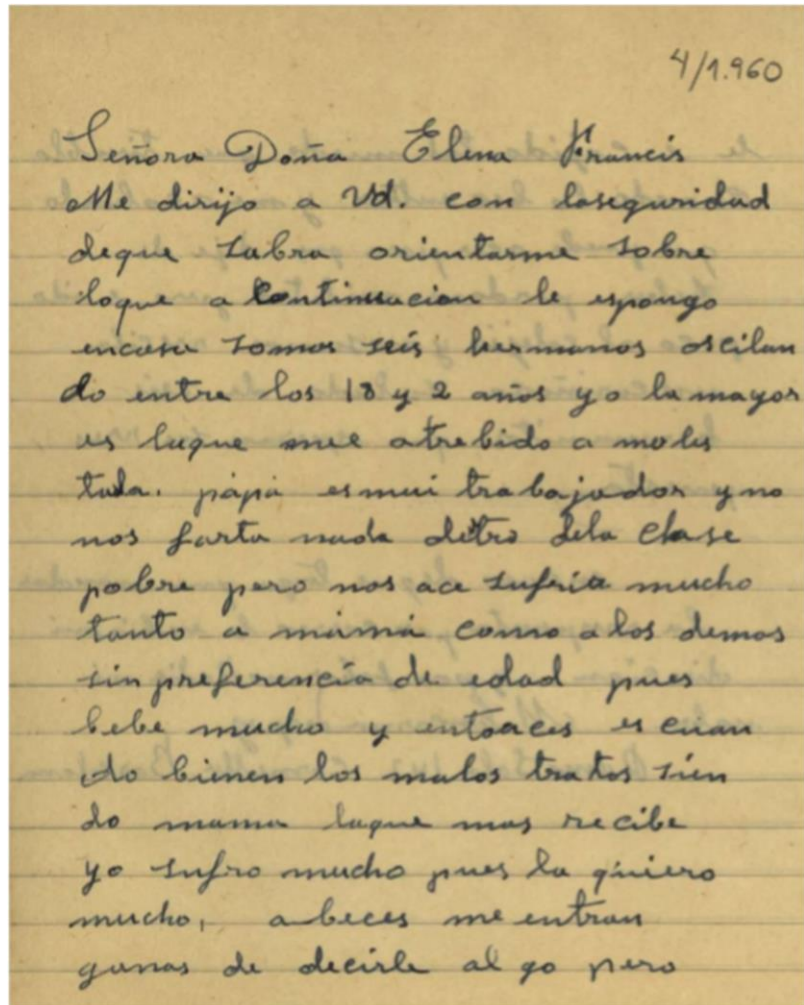 4/1.960
Señora Doña Elena Francis
Me dirijo a Vd. con laseguridad
deque sabra orientarme sobre
loque a continuacion le espongo
encasa somos seis hermanos oscilan
do entre los 18 y 2 años yo la mayor
es laque mee atrebido a moles
tala. pápá esmui trabajador y no
nos farta nada detro dela clase
pobre pero nos ace sufrir mucho
tanto a mámá como alos demas
sin preferencia de edad pues
bebe mucho y entoaces es cuan
do bienen los malos tratos sien
do mama laque mas recibe
yo sufro mucho pues la quiero
mucho, abeces me entran
ganas de decirle al go pero